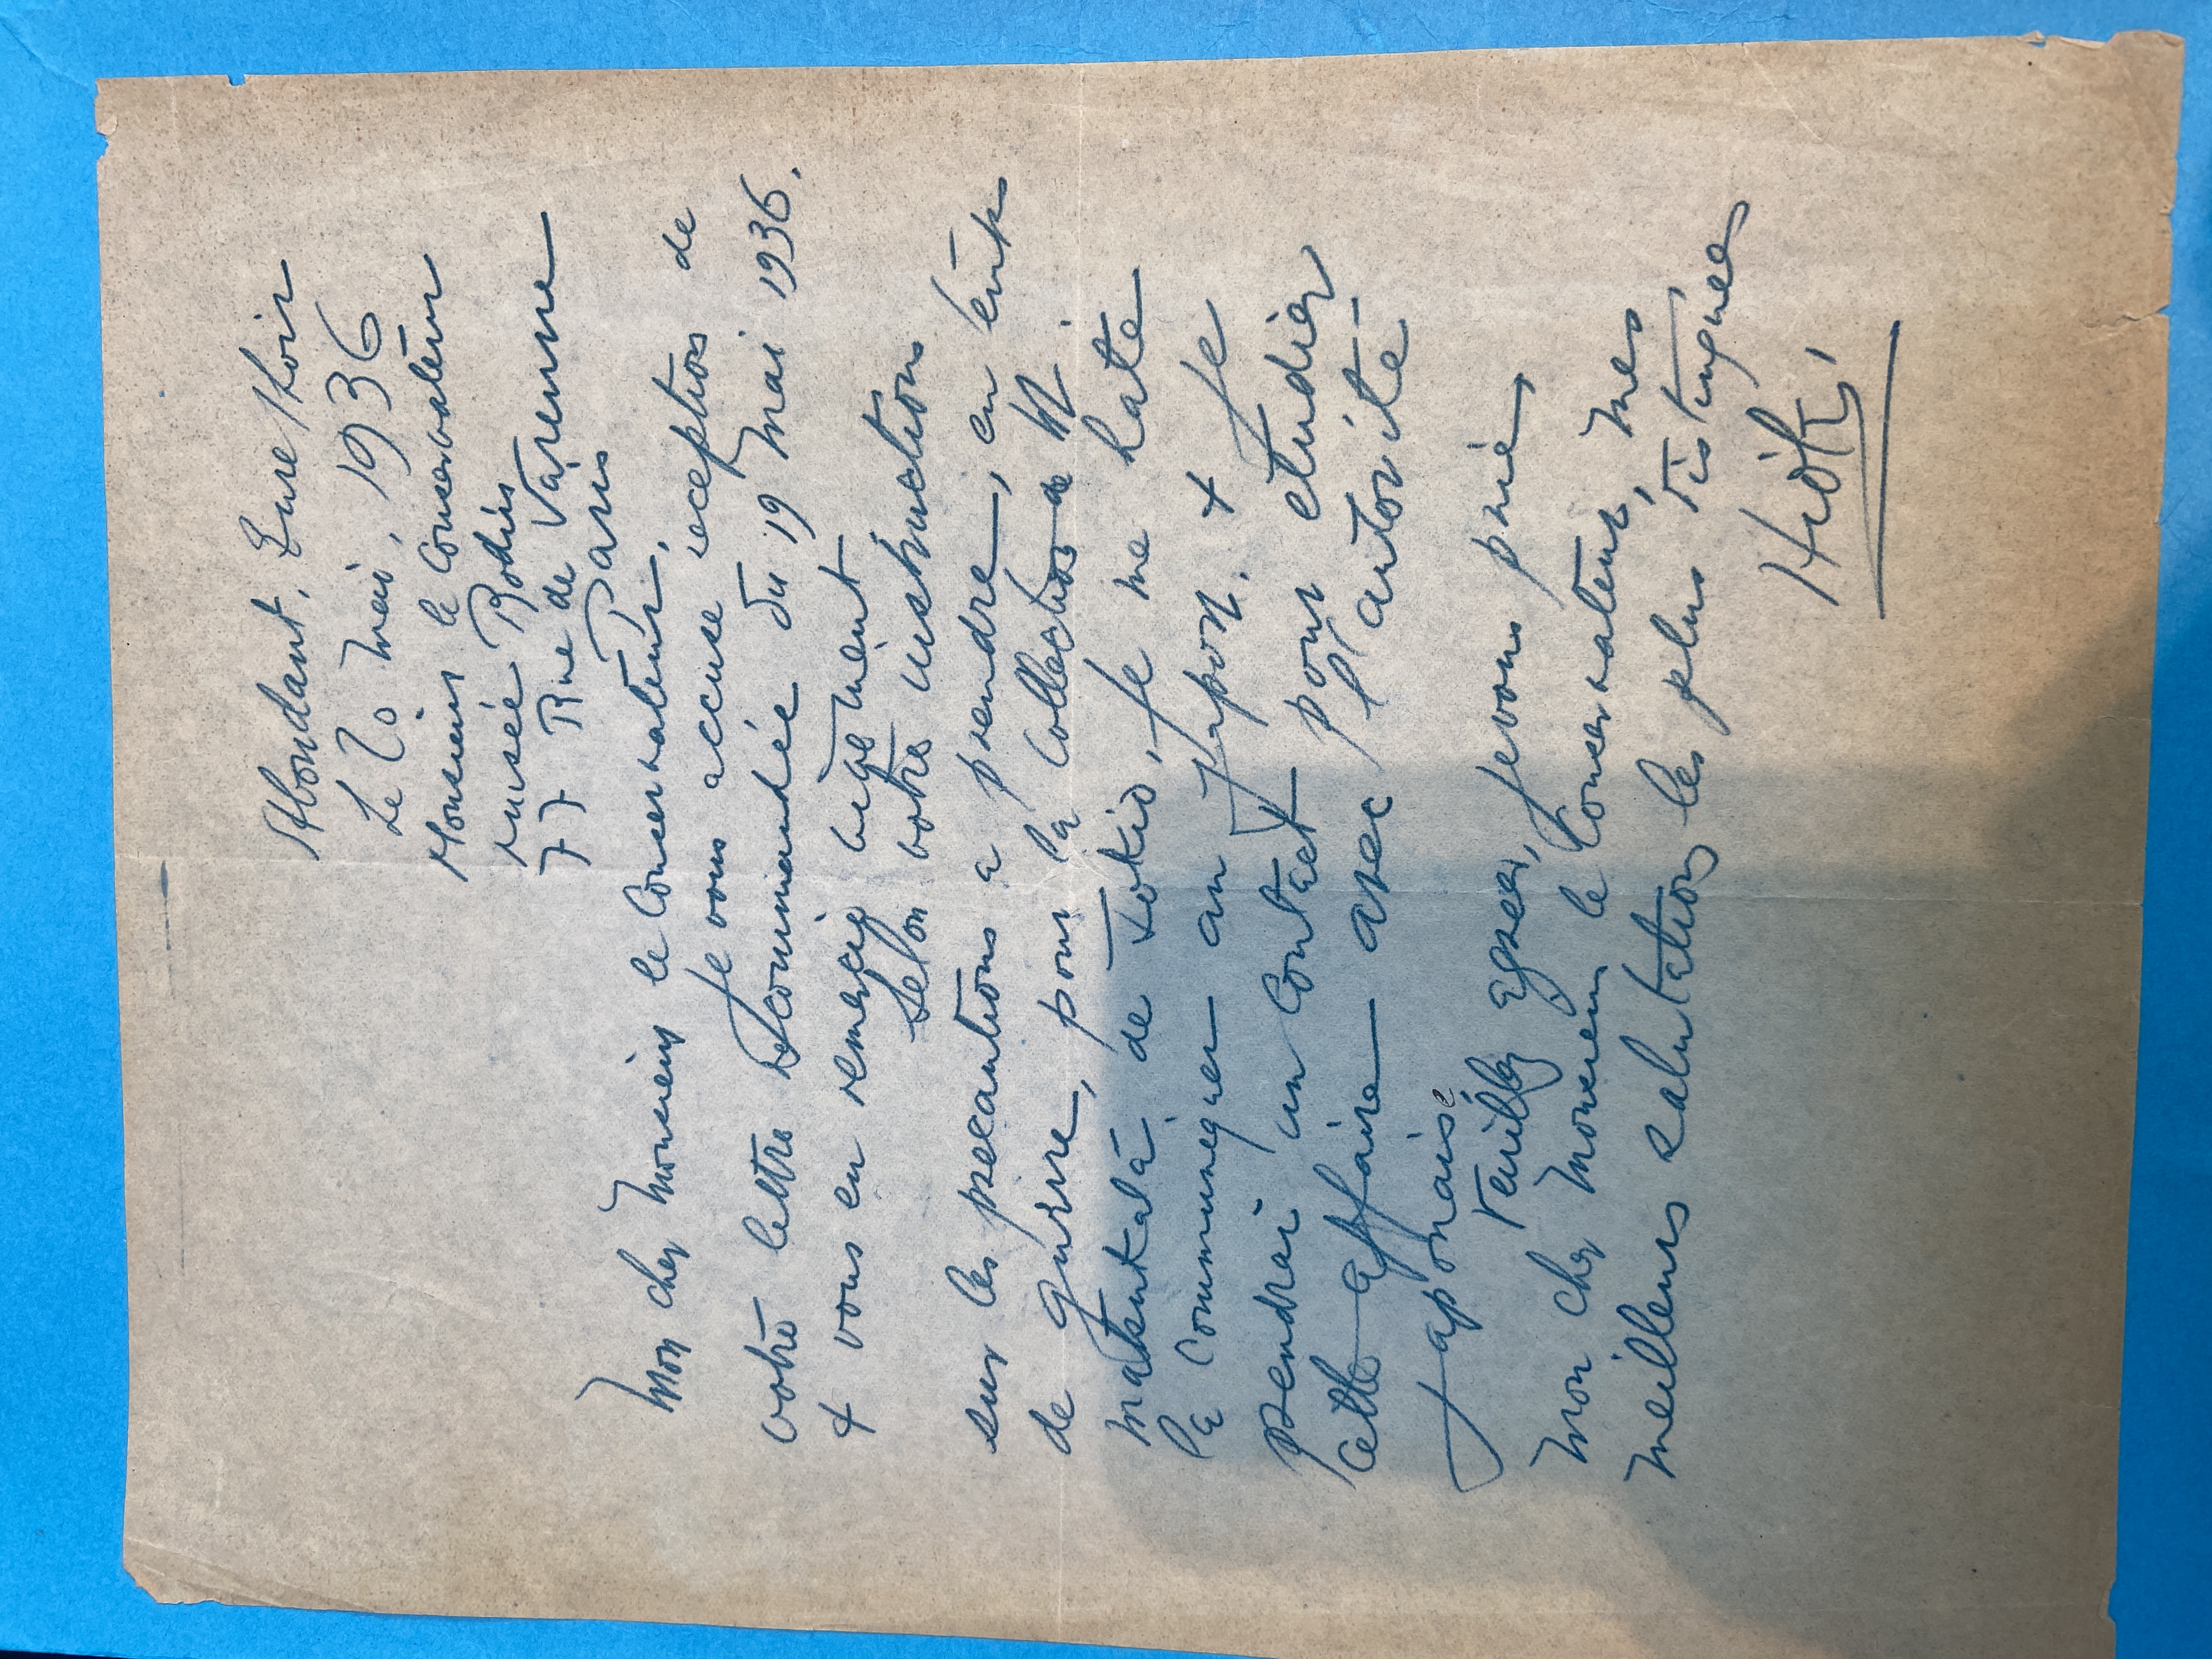 Abondant, Eure & Loir
Le 20 mai, 1936
Monsieur le Conservateur
Musée Rodin
77 Rue de Varenne
Paris
Mon cher Monsieur le Conservateur,
Je vous accuse reception de
votre lettre recommandée du 19 mai 1936.
& vous en remercie
Selon votre instruction
sur les precautions a prendre, en temps
de guerre, pour la Collection de M.
Matsukata de Tokio, je me hate
la communiquer au Japon. & Je
prendrai un Contact pour etudier
cette affaire avec l'autorité
Japonaise
Veuillez Agreer, je vous prie,
mon cher Monsieur le Conservateur, mes
meilleurs salutations les plus distinguees
Hioki